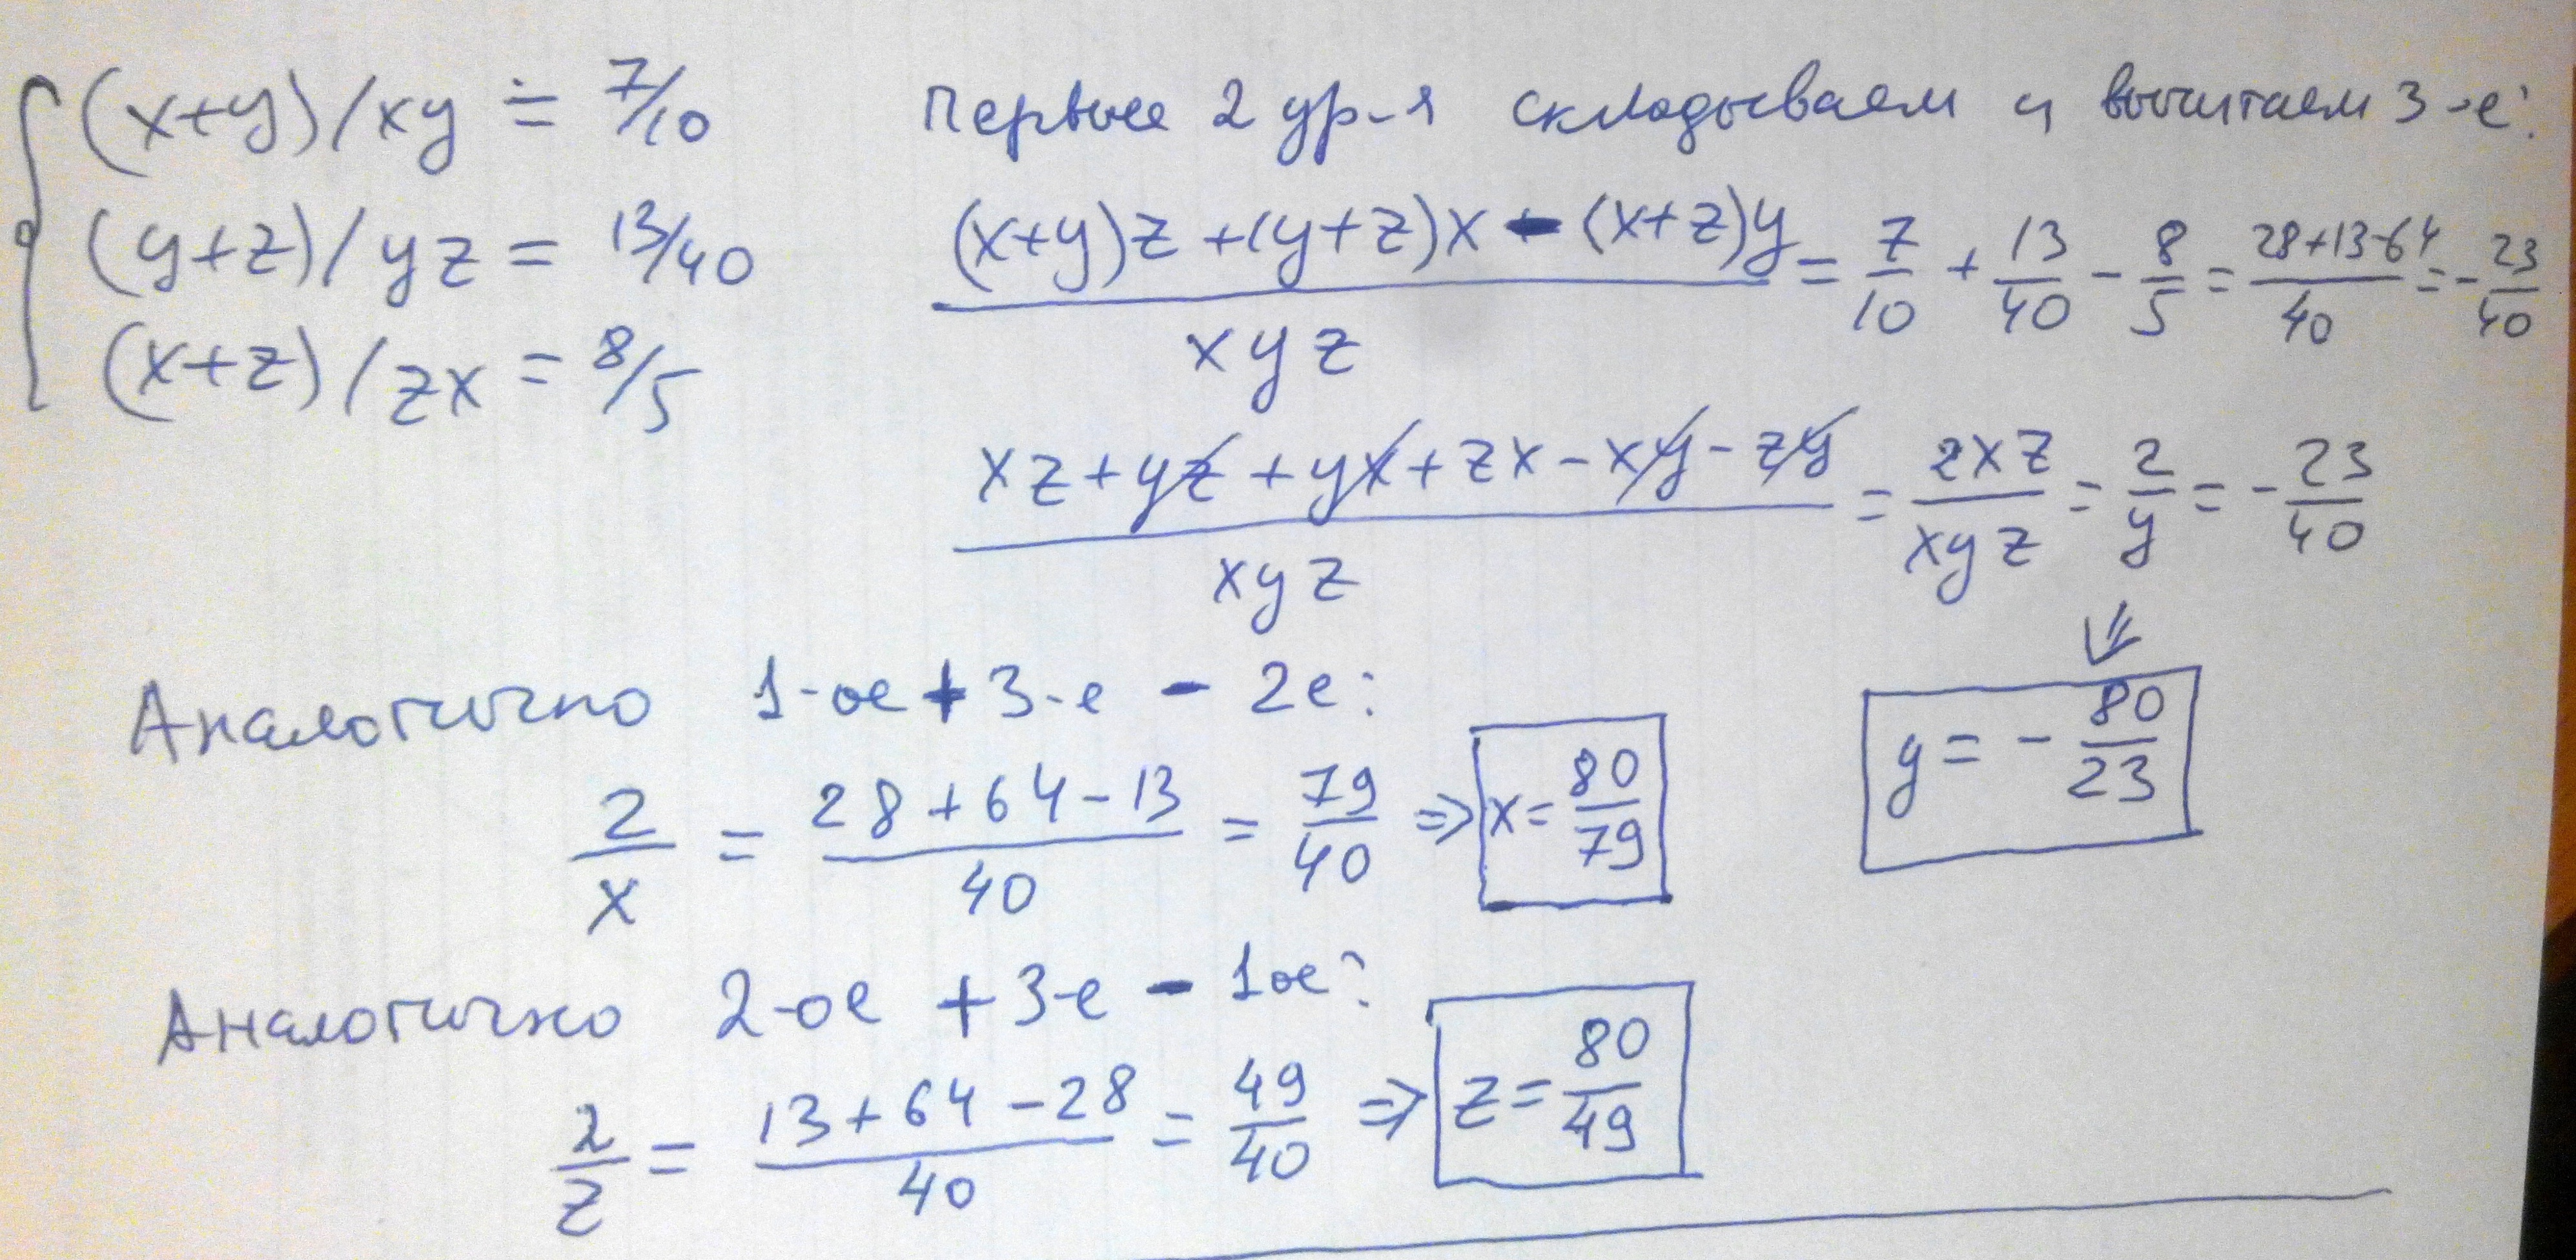 (x+y)/xy = 7/10
(y+z)/yz = 13/40
(x+z)/zx = 8/5
Первые 2 ур-я складываем и вычитаем 3-е:
((x+y)z+(y+z)x-(x+z)y)/xyz = 7/10 + 13/40 - 8/5 = (28+13-64)/40 = -23/40
(xz+yz+yx+zx-xy-zy)/xyz = 2xz/xyz = 2/y = -23/40
⇓
y = -80/23
Аналогично 1-ое + 3-е - 2е:
2/x = (28+64-13)/40 = 79/40 ⇒ x = 80/79
Аналогично 2-ое + 3-е - 1ое:
2/z = (13+64-28)/40 = 49/40 ⇒ z = 80/49